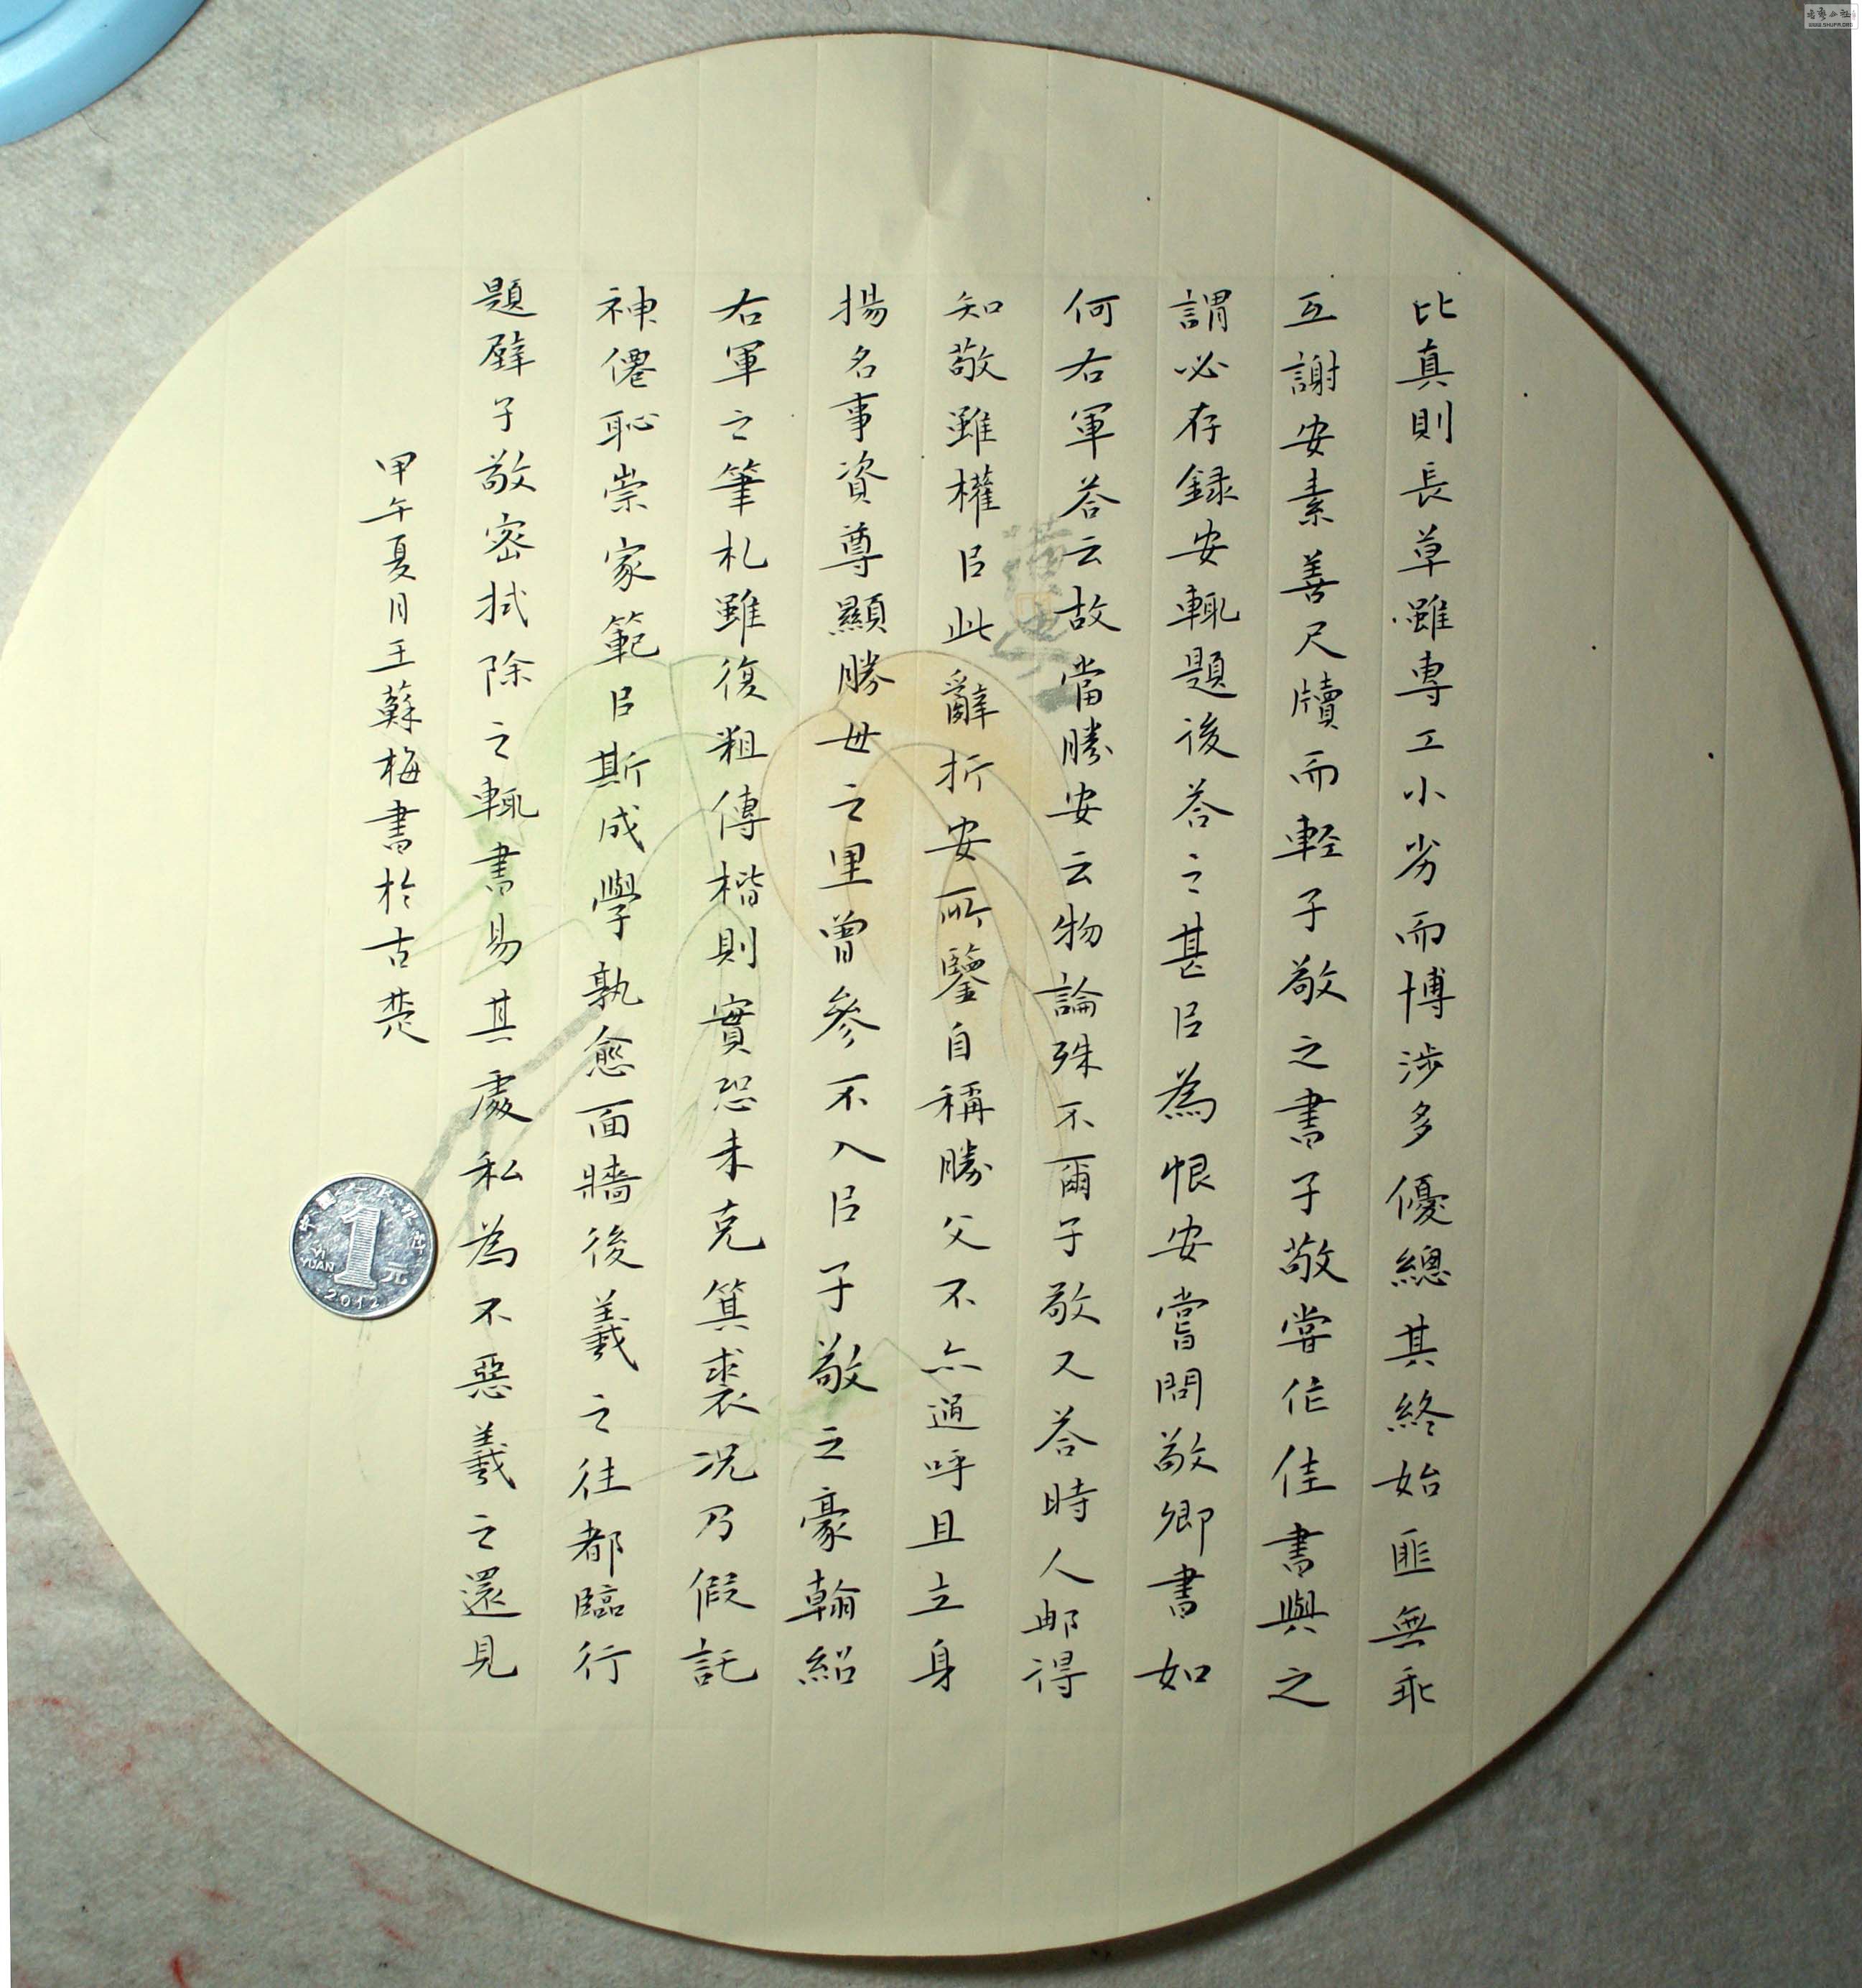 比真則長草雖專工小劣而博涉多優總其終始匪無乖
互謝安素善尺牘而輕子敬之書子敬嘗作佳書與之
謂必存録安輒題後荅之甚㠯為恨安嘗問敬卿書如
何右軍荅云故當勝安云物論殊不爾子敬又荅時人那得
知敬雖權㠯此辭折安所鑒自稱勝父不亦過乎且立身
揚名事資尊顯勝母之里曾參不入㠯子敬之豪翰紹
右軍之筆札雖復粗傳楷則實恐未克箕裘况乃假託
神僊恥崇家範㠯斯成學孰愈面牆後羲之往都臨行
題壁子敬密拭除之輒書易其處私為不惡羲之還見
甲午夏月王蘇梅書於古楚
中國人民銀行
1
元
YI YUAN
2012
WWW.SHUFA.ORG